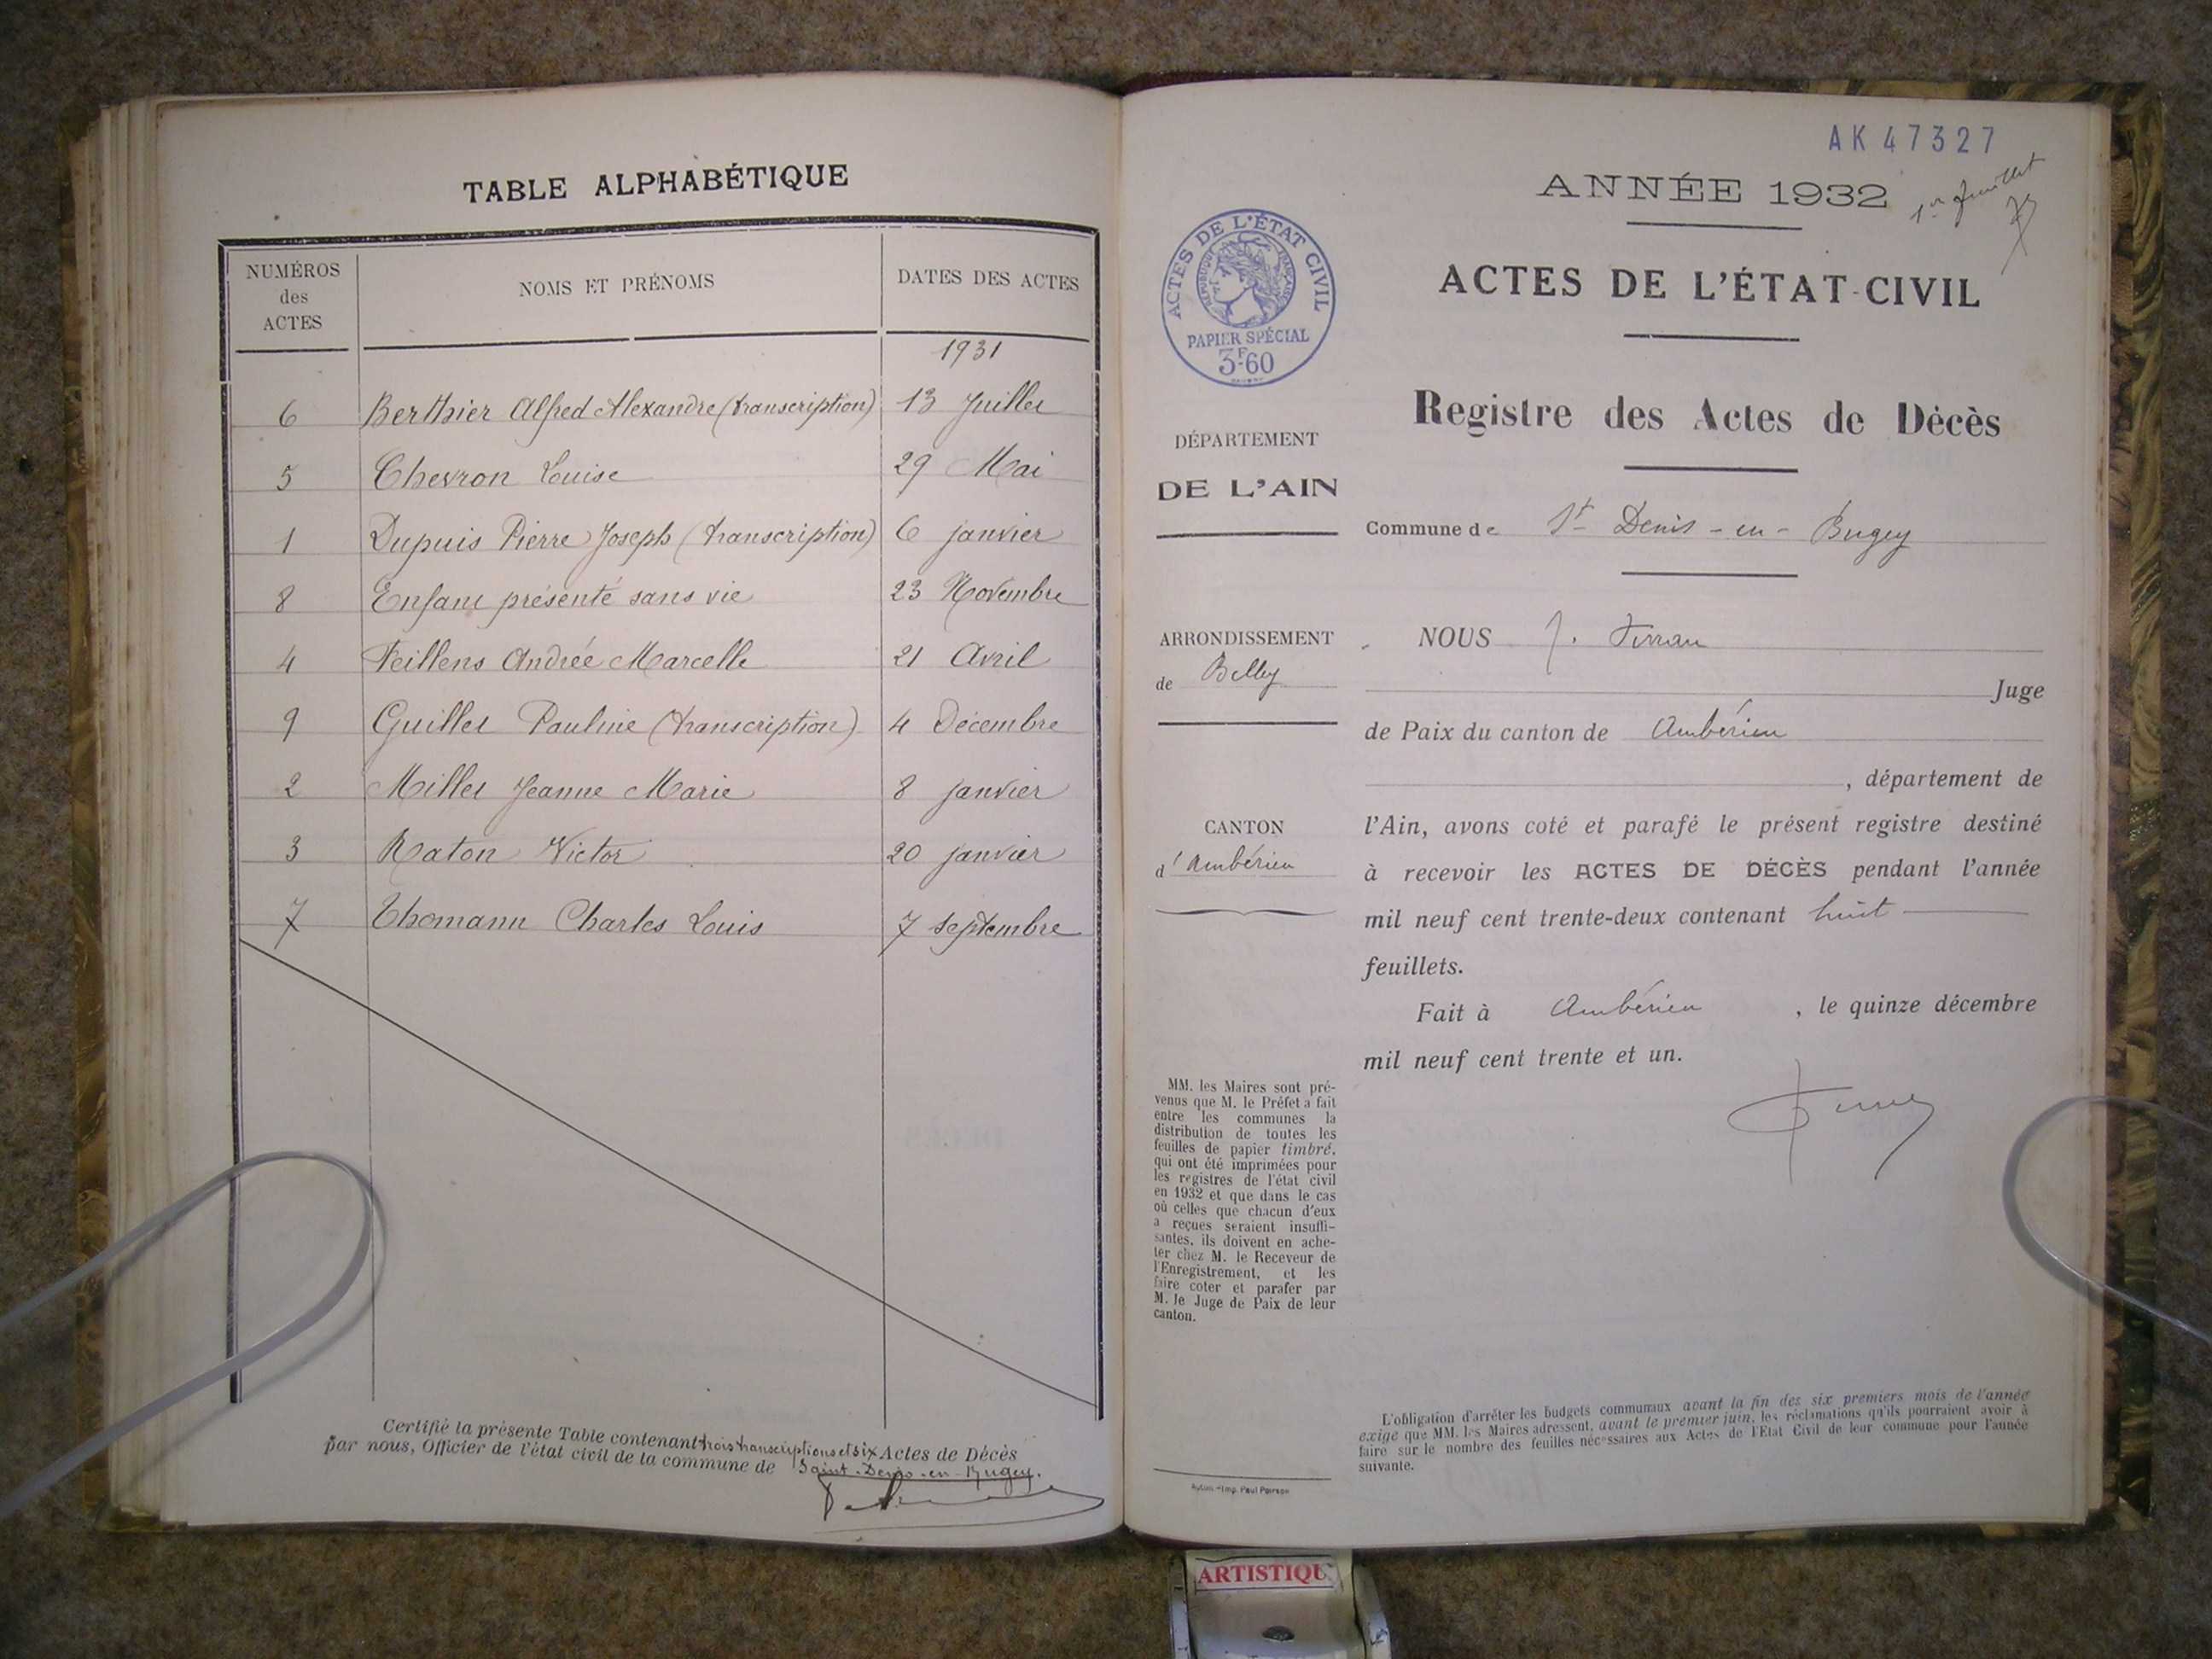 TABLE ALPHABÉTIQUE
NUMÉROS des ACTES NOMS ET PRÉNOMS DATES DES ACTES
1931
6 Berthier Alfred Alexandre (transcription) 13 Juillet
5 Chevron Louise 29 Mai
1 Dupuis Pierre Joseph (transcription) 6 janvier
8 Enfant présenté sans vie 23 Novembre
4 Feillens Andrée Marcelle 21 Avril
9 Guillet Pauline (transcription) 4 Décembre
2 Millet Jeanne Marie 8 janvier
3 Raton Victor 20 janvier
7 Thomann Charles Louis 7 septembre
Certifié la présente Table contenant trois transcriptions et six Actes de Décès
par nous, Officier de l'état civil de la commune de Saint-Denis-en-Bugey.
AK 47327
ANNÉE 1932
1er feuillet
ACTES DE L'ÉTAT CIVIL
RÉPUBLIQUE FRANÇAISE
PAPIER SPÉCIAL
3F60
ACTES DE L'ÉTAT-CIVIL
Registre des Actes de Décès
DÉPARTEMENT
DE L'AIN
Commune de St Denis-en-Bugey
ARRONDISSEMENT
de Belley
CANTON
d'Ambérieu
NOUS J.
Juge
de Paix du canton de Ambérieu
, département de
l'Ain, avons coté et parafé le présent registre destiné
à recevoir les ACTES DE DÉCÈS pendant l'année
mil neuf cent trente-deux contenant huit
feuillets.
Fait à Ambérieu, le quinze décembre
mil neuf cent trente et un.
MM. les Maires sont pré-
venus que M. le Préfet a fait
entre les communes la
distribution de toutes les
feuilles de papier timbré,
qui ont été imprimées pour
les registres de l'état civil
en 1932 et que dans le cas
où celles que chacun d'eux
a reçues seraient insuffi-
santes, ils doivent en ache-
ter chez M. le Receveur de
l'Enregistrement, et les
faire coter et parafer par
M. le Juge de Paix de leur
canton.
L'obligation d'arrêter les budgets communaux avant la fin des six premiers mois de l'année
exige que MM. les Maires adressent, avant le premier juin, les réclamations qu'ils pourraient avoir à
faire sur le nombre des feuilles nécessaires aux Actes de l'Etat Civil de leur commune pour l'année
suivante.
Imp. Paul
ARTISTIQU